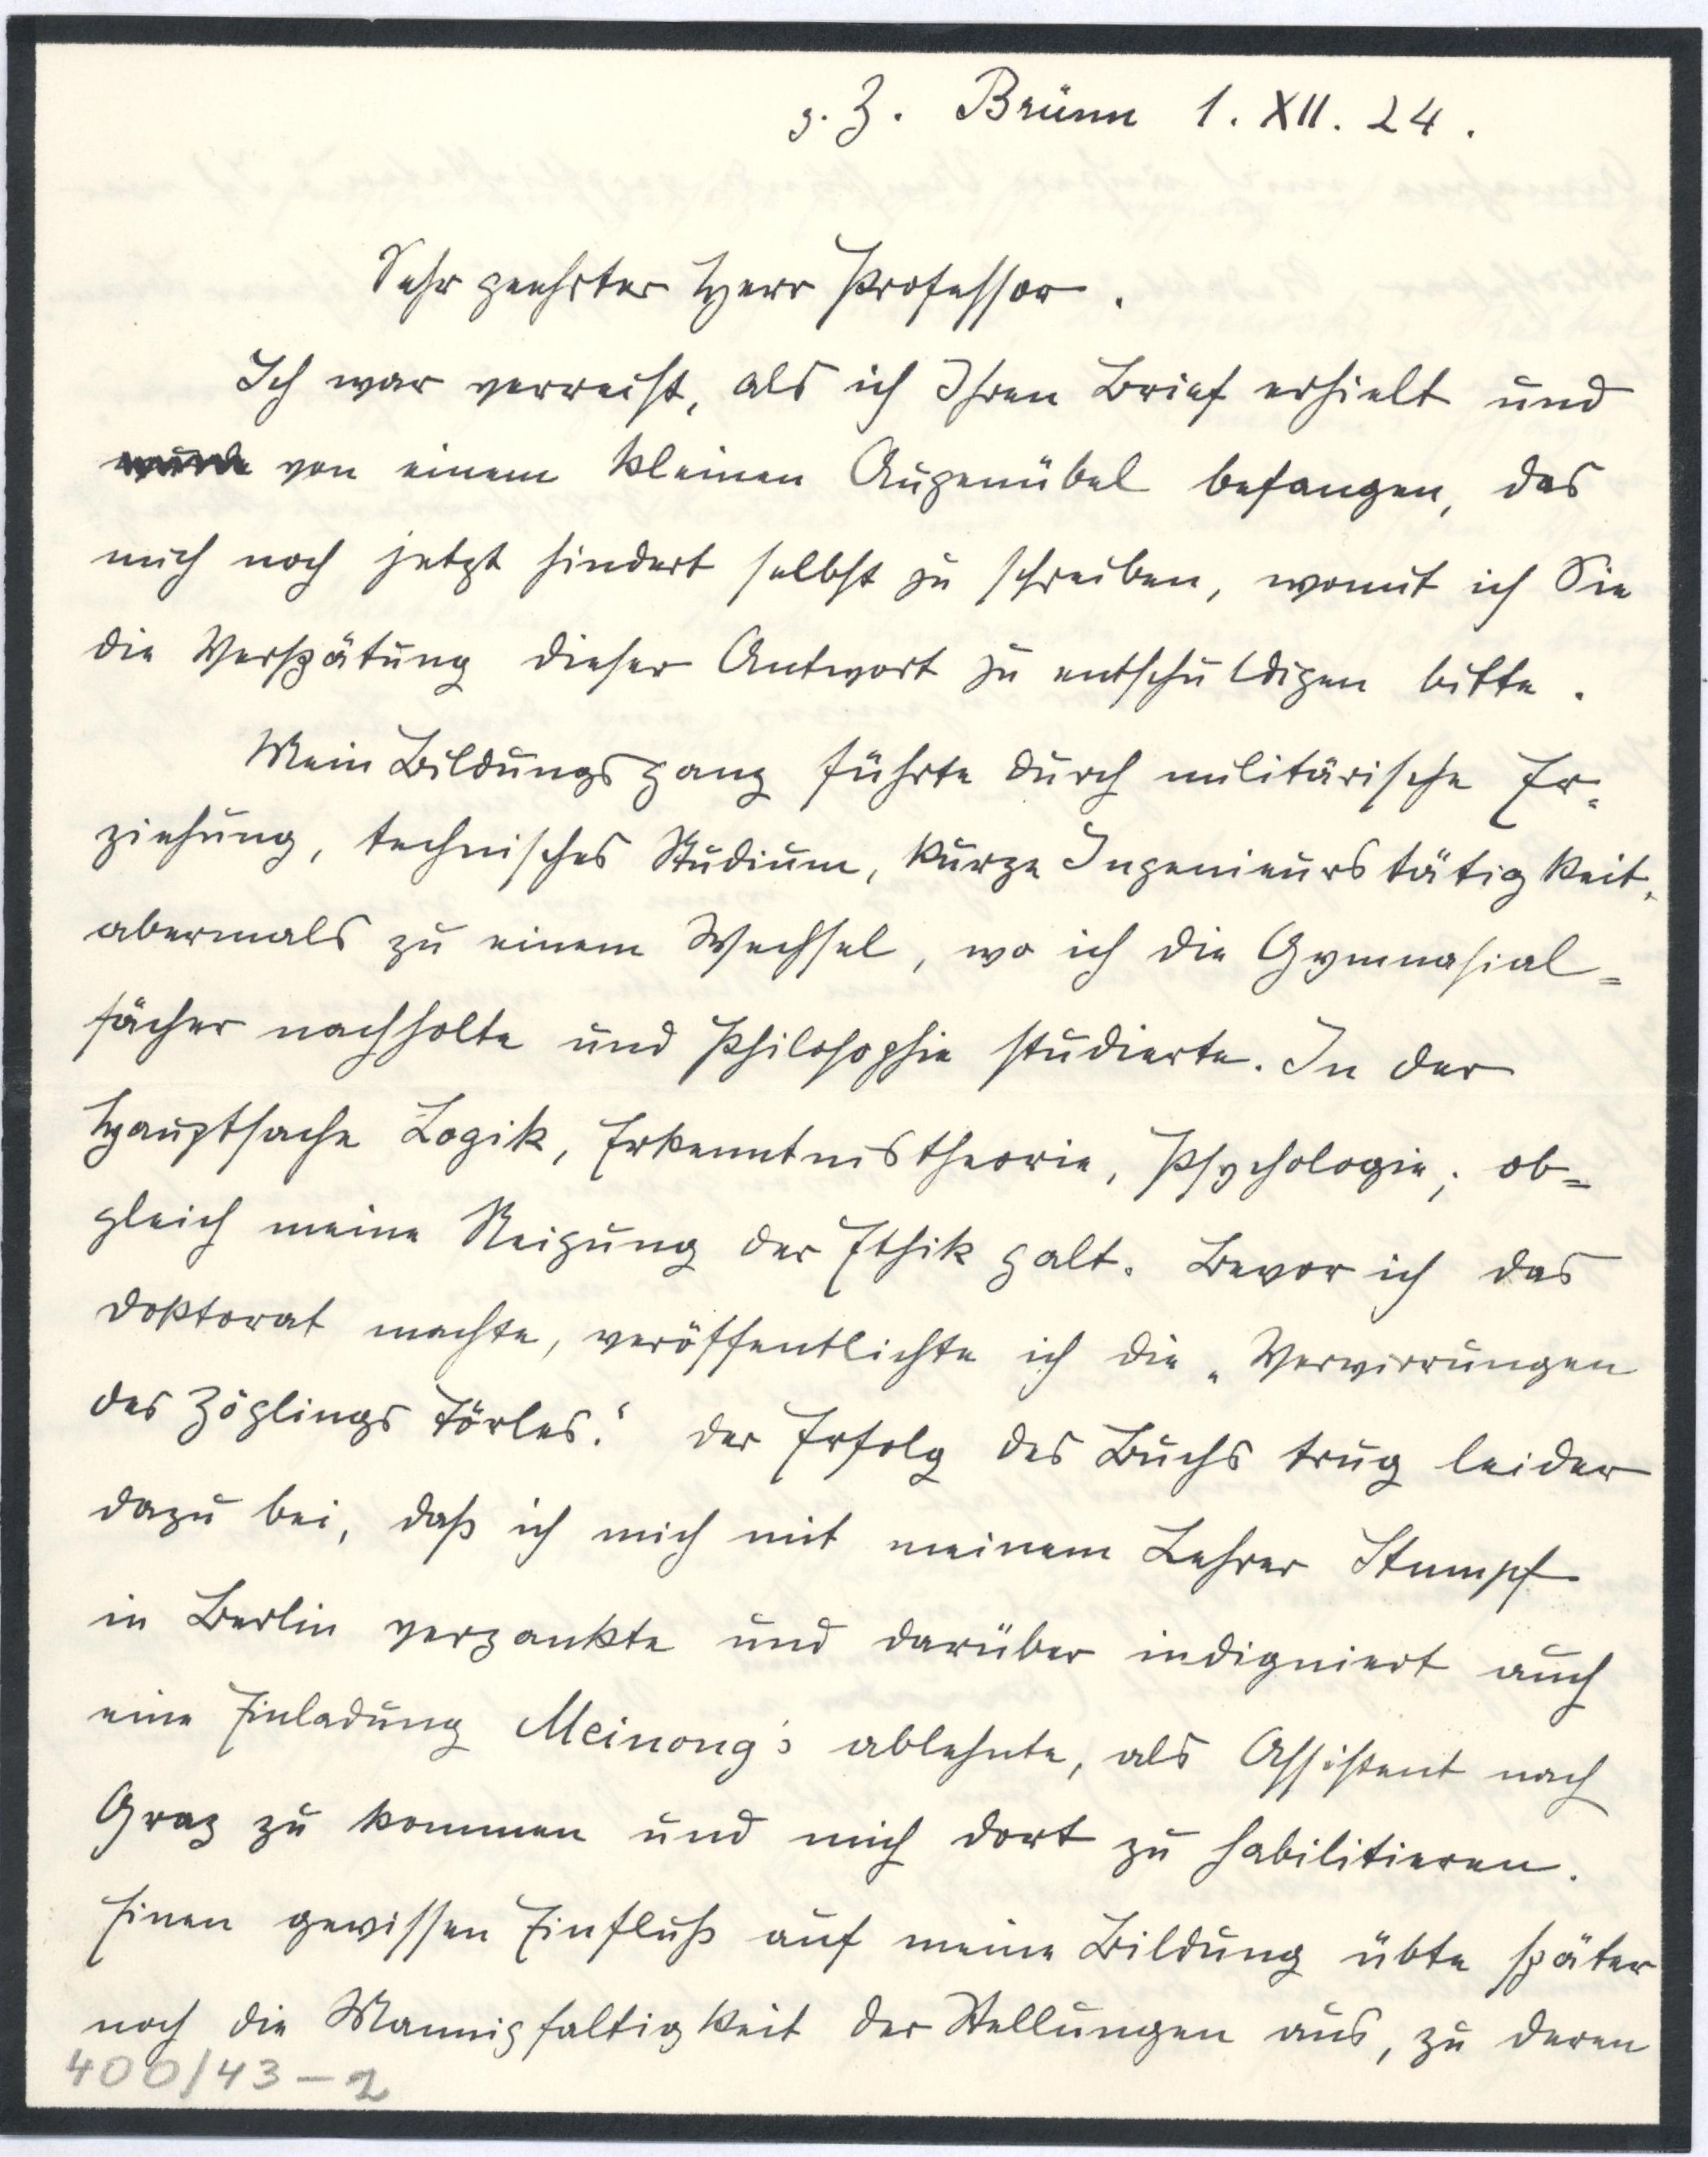 z. Z. Brünn 1. XII. 24.
Sehr geehrter Herr Professor.
Ich war verreist, als ich Ihren Brief erhielt und
wurde von einem kleinen Augenübel befangen, das
mich noch jetzt hindert selbst zu schreiben, womit ich Sie
die Verspätung dieser Antwort zu entschuldigen bitte.
Mein Bildungsgang führte durch militärische Er-
ziehung, technisches Studium, kurze Ingenieurstätigkeit,
abermals zu einem Wechsel, wo ich die Gymnasial=
fächer nachholte und Philosophie studierte. In der
Hauptsache Logik, Erkenntnistheorie, Psychologie; ob=
gleich meine Neigung der Ethik galt. Bevor ich das
Doktorat machte, veröffentlichte ich die „Verwirrungen
des Zöglings Törles.“ Der Erfolg des Buchs trug leider
dazu bei, daß ich mich mit meinem Lehrer Stumpf
in Berlin verzankte und darüber indigniert auch
eine Einladung Meinong's ablehnte, als Assistent nach
Graz zu kommen und mich dort zu habilitieren.
Einen gewissen Einfluß auf meine Bildung übte später
noch die Mannigfaltigkeit der Stellungen aus, zu deren
400/43-2